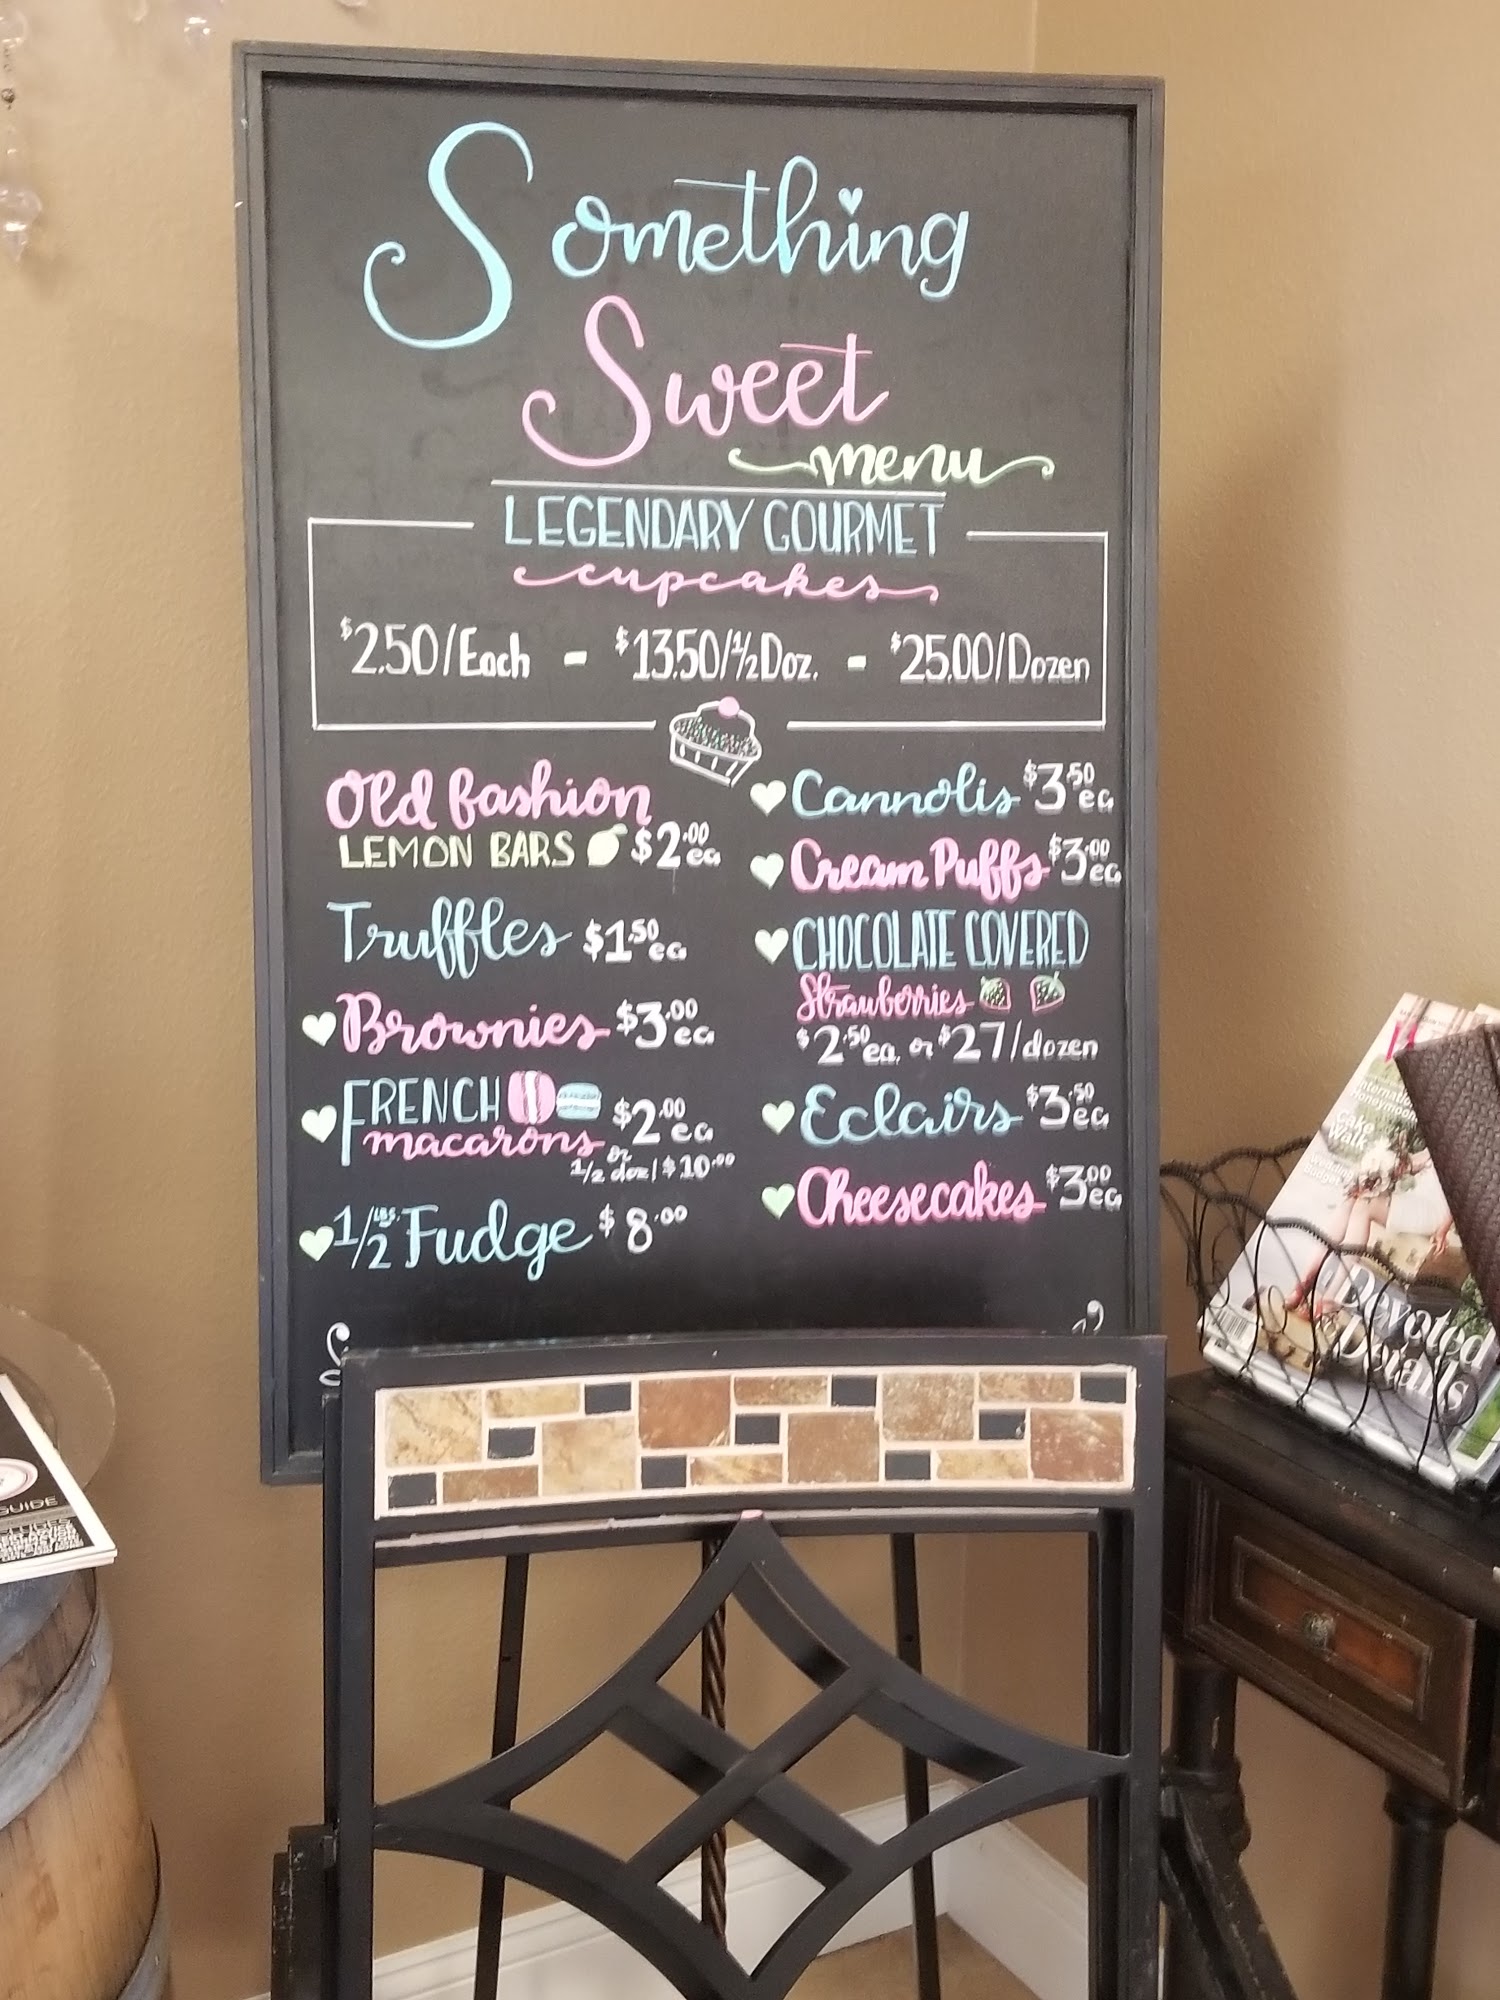 Something
Sweet
menu
LEGENDARY GOURMET
cupcakes
$2.50/Each - $13.50/½Doz. - $25.00/Dozen
Old fashion
LEMON BARS $2.00 ea
Truffles $1.50 ea
Brownies $3.00 ea
FRENCH
macarons $2.00 ea
or
1/2 doz/$10.00
1/2 LBS. Fudge $8.00
Cannolis $3.50 ea
Cream Puffs $3.00 ea
CHOCOLATE COVERED
Strawberries
$2.50 ea. or $27/dozen
Eclairs $3.50 ea
Cheesecakes $3.00 ea
Cake
Walk
Devoted
Details
GUIDE